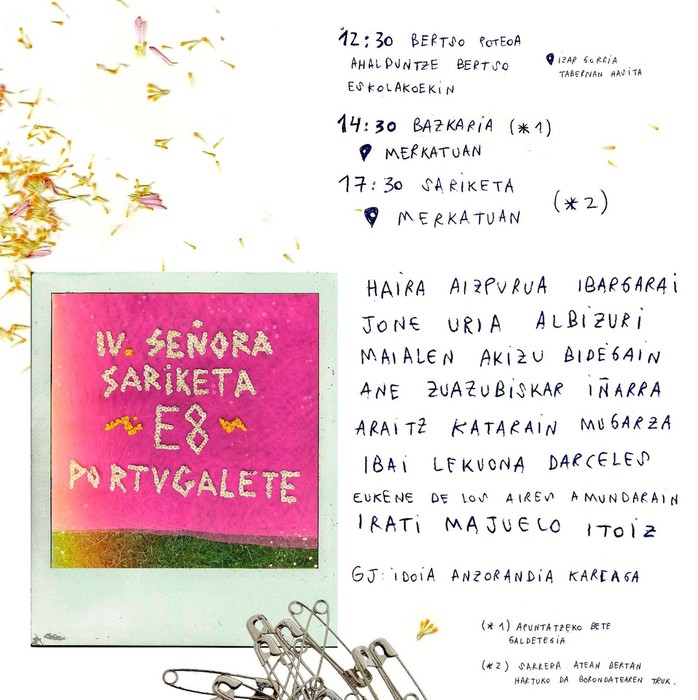 12:30 BERTSO POTEOA
AHALDUNTZE BERTSO
ESKOLAKOEKIN
IZAR GORRIA
TABERNAN HASITA
14:30 BAZKARIA (*1)
MERKATUAN
17:30 SARIKETA
MERKATUAN
(*2)
IV. SEÑORA
SARIKETA
E8
PORTVGALETE
HAIRA AIZPURUA IBARGARAI
JONE URIA ALBIZURI
MAIALEN AKIZU BIDEGAIN
ANE ZUAZUBISKAR IÑARRA
ARAITZ KATARAIN MUGARZA
IBAI LEKUONA DARCELES
EUKENE DE LOS AIRES AMUNDARAIN
IRATI MAJUELO ITOIZ
GJ: IDOIA ANZORANDIA KAREAGA
(*1) APUNTATZEKO BETE
GALDETEGIA
(*2) SARRERA ATEAN BERTAN
HARTUKO DA BORONDATEAREN TRUK.